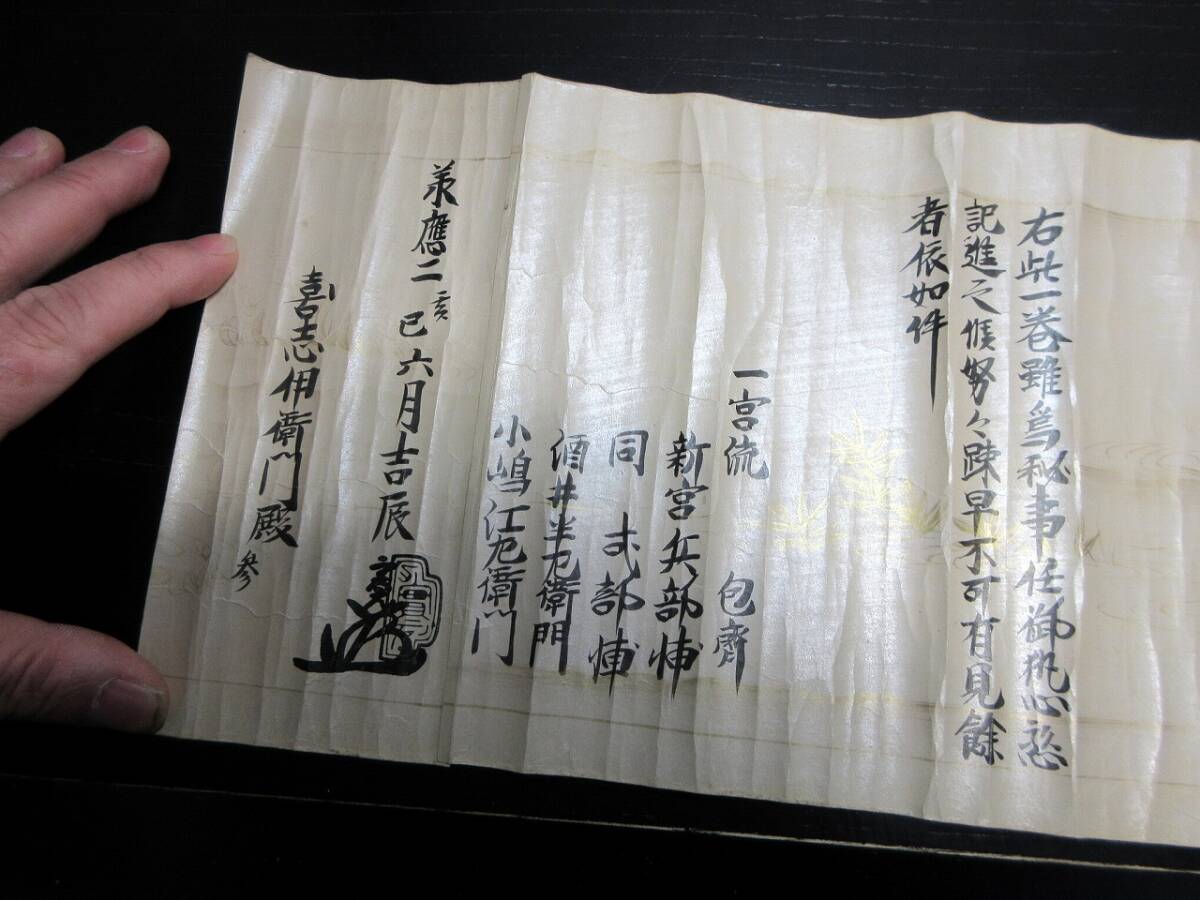 右此一巻雖為秘事任御執心
記進之候努々疎早不可有見餘
者依如件
一宮流 包齊
新宮兵部悑
同 式部悑
酒井半左衛門
小嶋江左衛門
承應二 亥 巳六月吉辰
喜志伊衛門殿 參